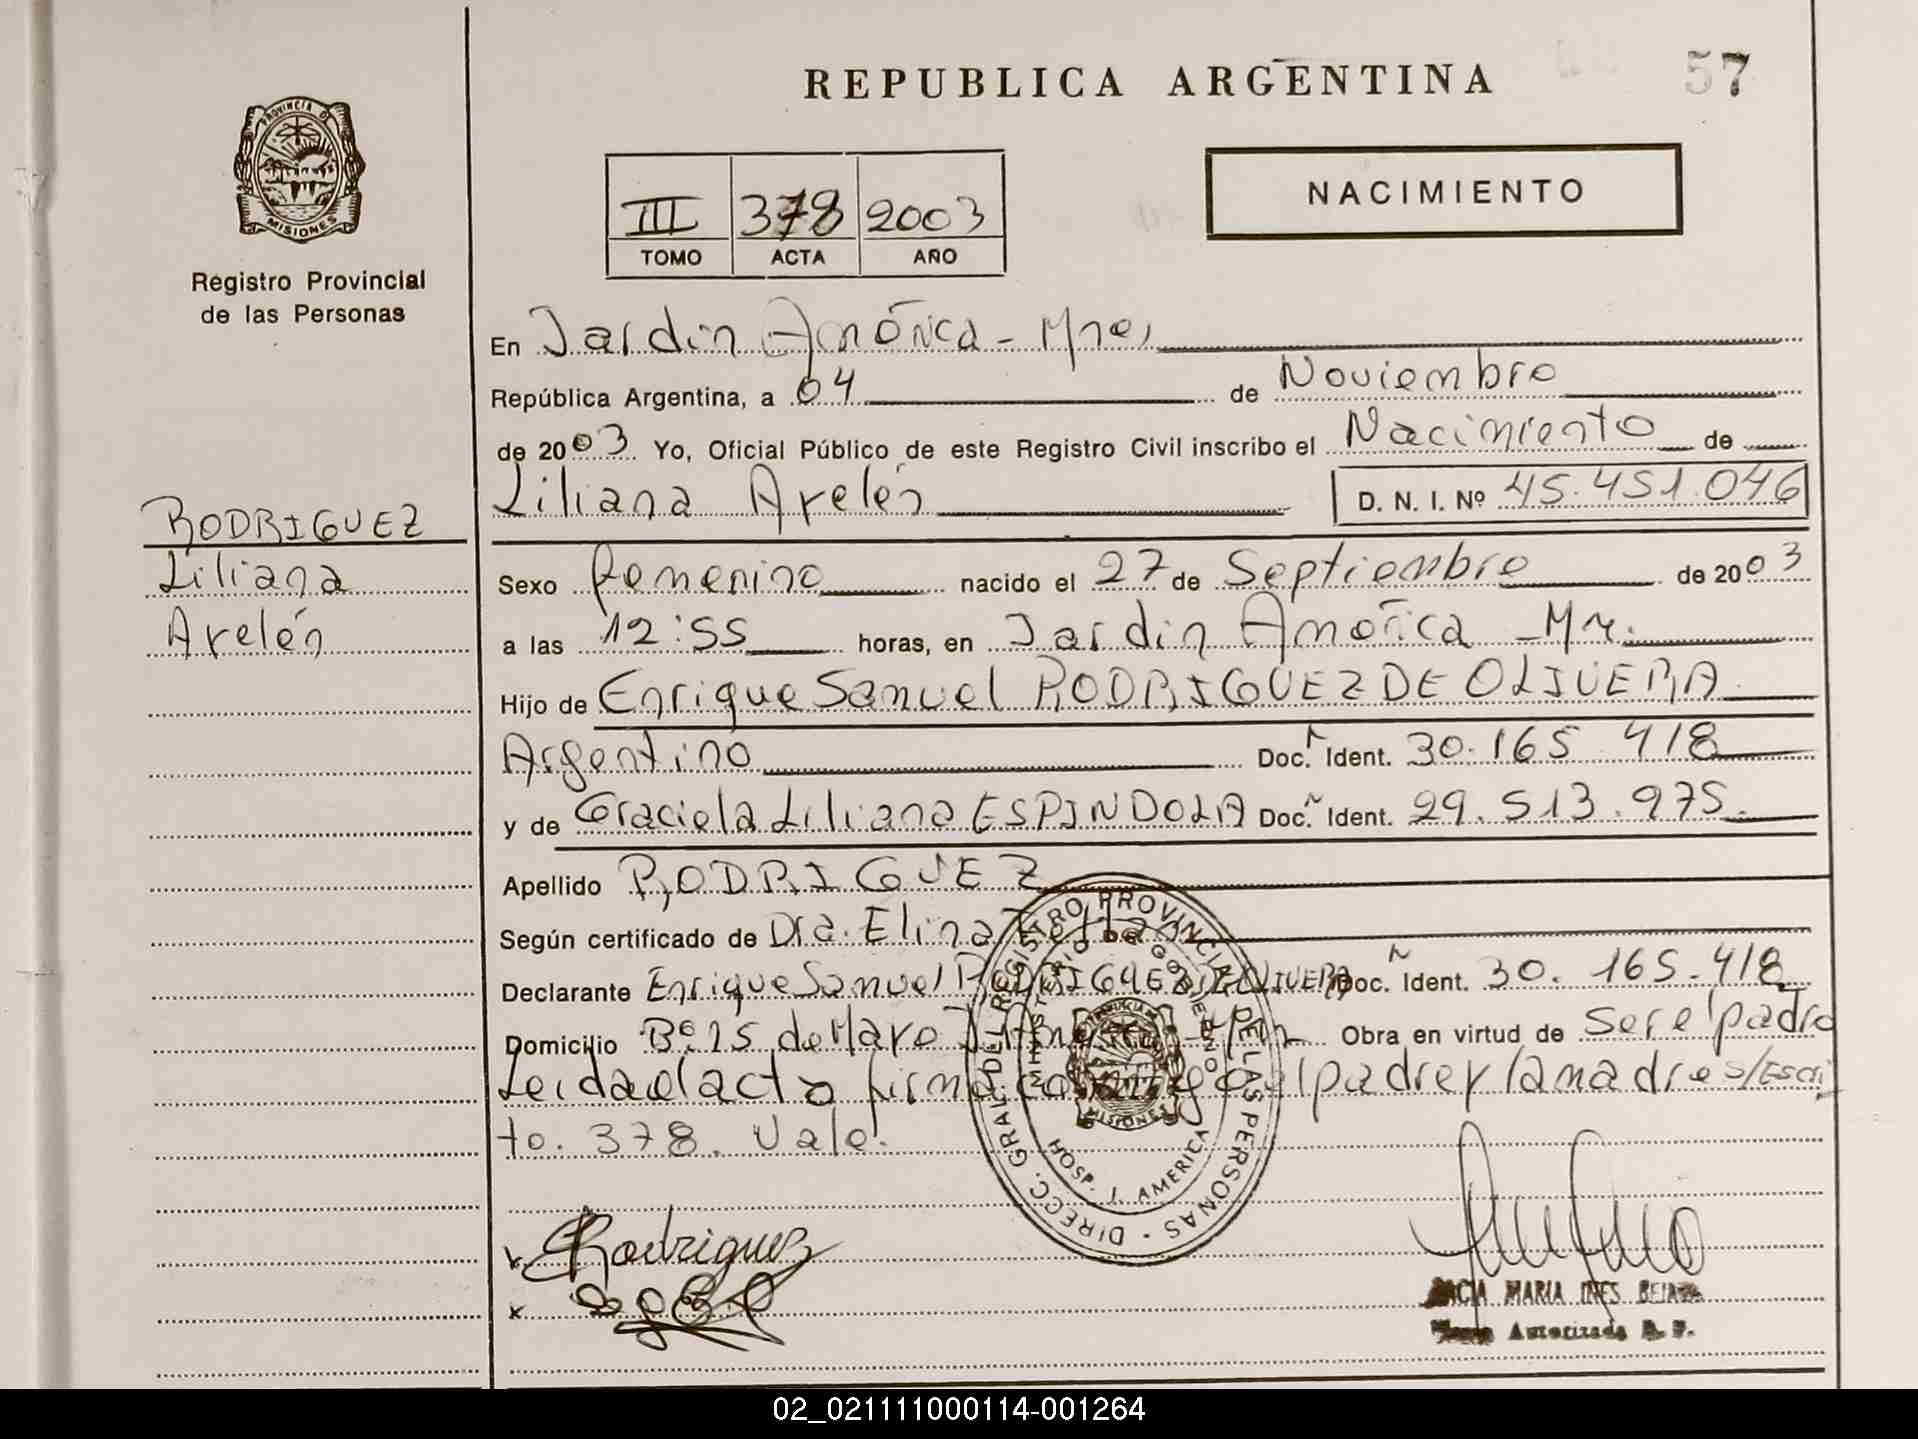 REPUBLICA ARGENTINA
57
PROVINCIA DE
MISIONES
Registro Provincial
de las Personas
III 378 2003
TOMO ACTA AÑO
NACIMIENTO
En Jardín América - Mnes
República Argentina, a 04 de Noviembre
de 2003 Yo, Oficial Público de este Registro Civil inscribo el Nacimiento de
Liliana Arelén D. N. I. Nº 45.451.046
RODRIGUEZ
Liliana
Arelén
Sexo femenino nacido el 27 de Septiembre de 2003
a las 12:55 horas, en Jardín América - Mn.
Hijo de Enrique Samuel RODRIGUEZ DE OLIVERA
Argentino Doc. Ident. 30.165.418
y de Graciela Liliana ESPINDOLA Doc. Ident. 29.513.975.
Apellido RODRIGUEZ
Según certificado de Dra. Elina
Declarante Enrique Samuel RODRIGUEZ DE OLIVERA Doc. Ident. 30.165.418
Domicilio Bº 25 de Mayo Obra en virtud de ser el padre
Leida el acta firma conmigo el padre y la madre s/Escri
to. 378. Vale.
DIRECC. GRAL. DEL REGISTRO PROVINCIAL DE LAS PERSONAS
MINISTERIO DE GOBIERNO
HOSP. J. AMERICA
MISIONES
Rodriguez
MARIA INES
Autorizada
02_021111000114-001264